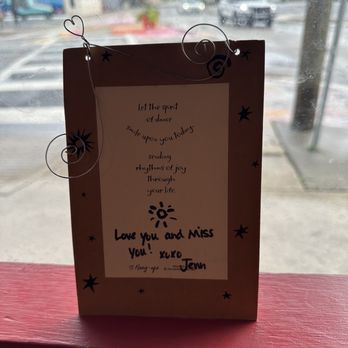 Let the spirit
of dance
smile upon you today
sending
rhythms of joy
through
your life.
Love you and Miss
You! xoxo
Jenn